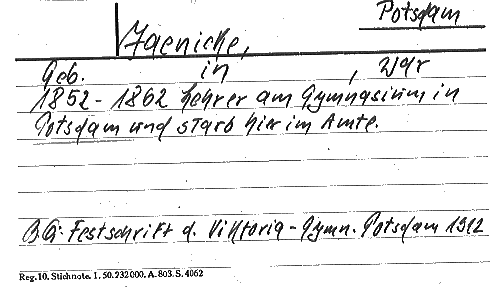 Potsdam
Jaenicke,
Geb. in , war
1852 - 1862 Lehrer am Gymnasium in
Potsdam und starb hier im Amte.
B.G: Festschrift d. Viktoria - Gymn. Potsdam 1912
Reg. 10. Stichnote. 1. 50. 232000. A. 803. S. 4062